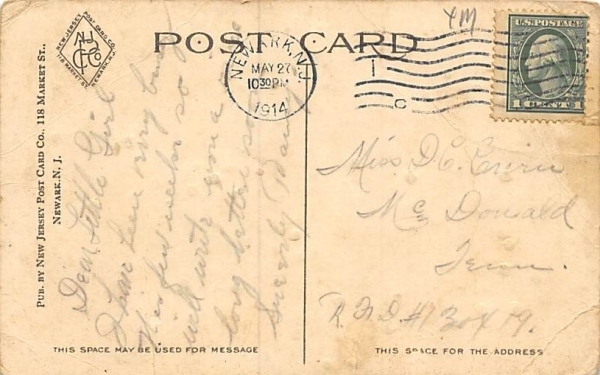 YM
POST CARD
NEW JERSEY POST CARD CO.
118 MARKET ST.
NEWARK, N.J.
NEWARK, N.J.
MAY 27
10 30 PM
1914
1
C
U.S. POSTAGE
1 CENT 1
PUB. BY NEW JERSEY POST CARD CO., 118 MARKET ST.,
NEWARK, N. J.
Dear Little Girl
I have been very busy
this few weeks so
will write you a
long letter soon
Sincerely
Miss D C
Mc Donald
Tenn.
R. F. D #1 Box 19.
THIS SPACE MAY BE USED FOR MESSAGE
THIS SPACE FOR THE ADDRESS